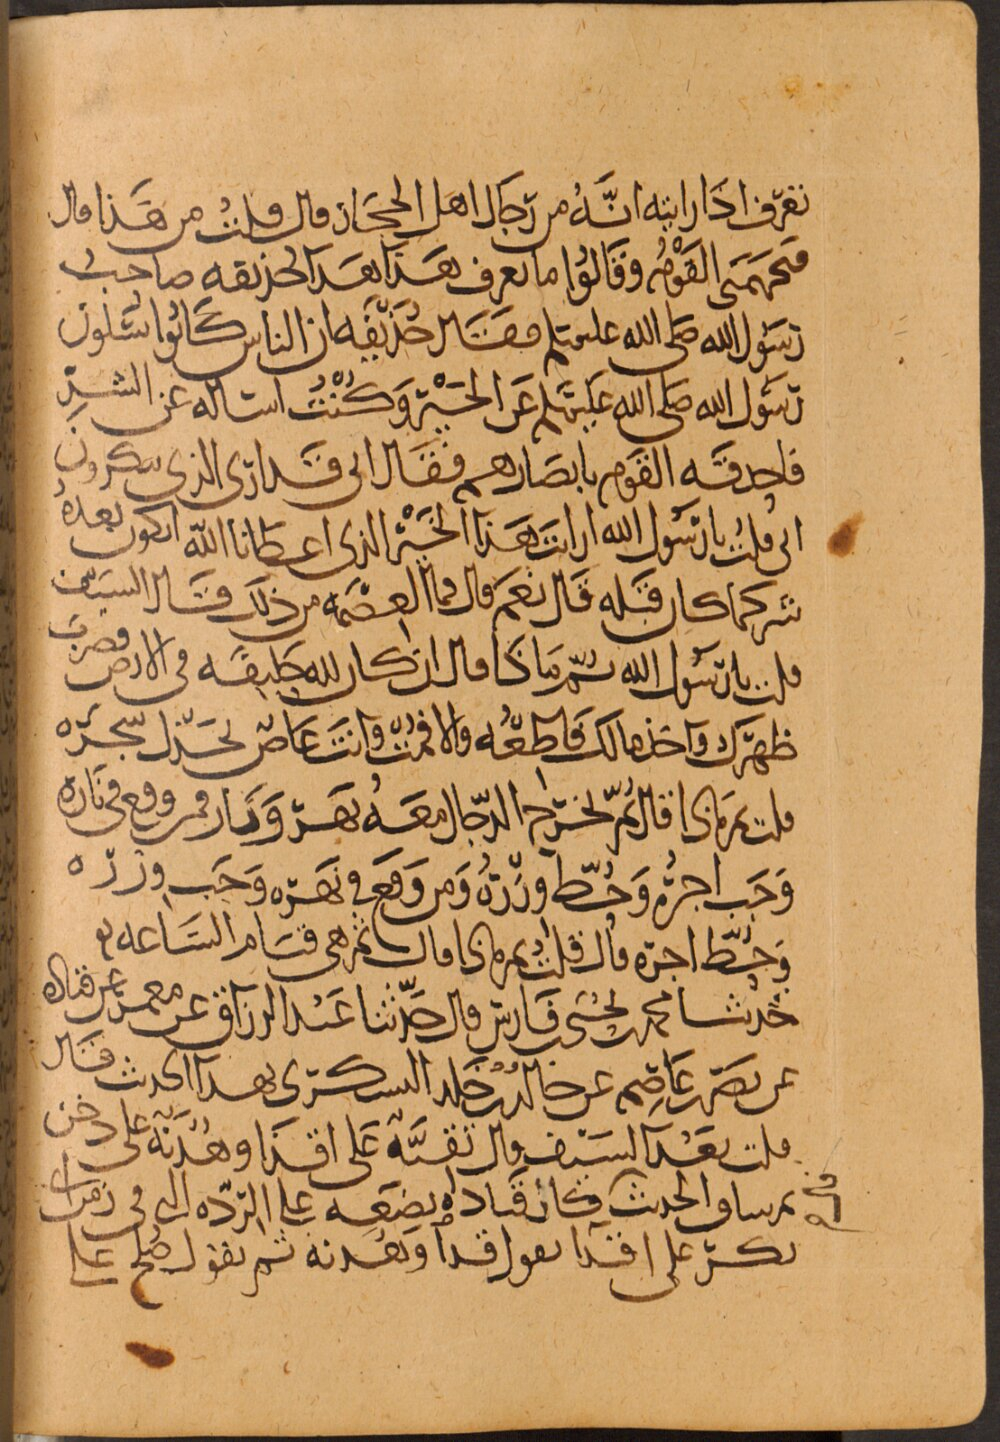 تعرف اذا رايته انه من رجال اهل الحجاز قال قلت من هذا قال
فتجهمني القوم وقالوا ما تعرف هذا هذا حذيفه صاحب
رسول الله صلى الله عليه وسلم فقال حذيفه ان الناس كانوا يسلون
رسول الله صلى الله عليه وسلم عن الخير وكنت اساله عن الشر
فاحدقه القوم بابصارهم فقال اني قد ارى الذي تنكرون
اني قلت يا رسول الله ارايت هذا الخير الذي اعطانا الله ايكون بعده
شر كما كان قبله قال نعم قال فما العصمه من ذلك قال السيف
قلت يا رسول الله ثم ماذا قال ان كان لله خليفه في الارض فضرب
ظهرك واخذ مالك فاطعه والا فمت وانت عاض بجذل شجره
قلت ثم ماذا قال ثم يخرج الدجال معه نهر ونار فمن وقع في ناره
وجب اجره وحط وزره ومن وقع في نهره وجب وزره
وحط اجره قال قلت ثم ماذا قال ثم هي قيام الساعه
حدثنا محمد بن يحيى بن فارس قال حدثنا عبد الرزاق عن معمر عن قتاده
عن نصر بن عاصم عن خالد بن خلد اليسكري بهذا الحديث قال
قلت بعد السيف قال تقيه على اقذا وهدنه على دخن
ثم ساق الحديث فكان قتاده يضعه على الرده التي في زمن ابي
بكر على اقذا يقول قذا وهدنه ثم يقول صلح على